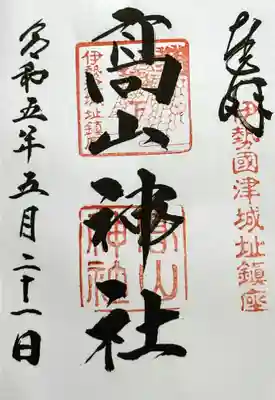 奉拝
伊勢國津城址鎮座
高山神社
高山神社
令和五年五月二十一日